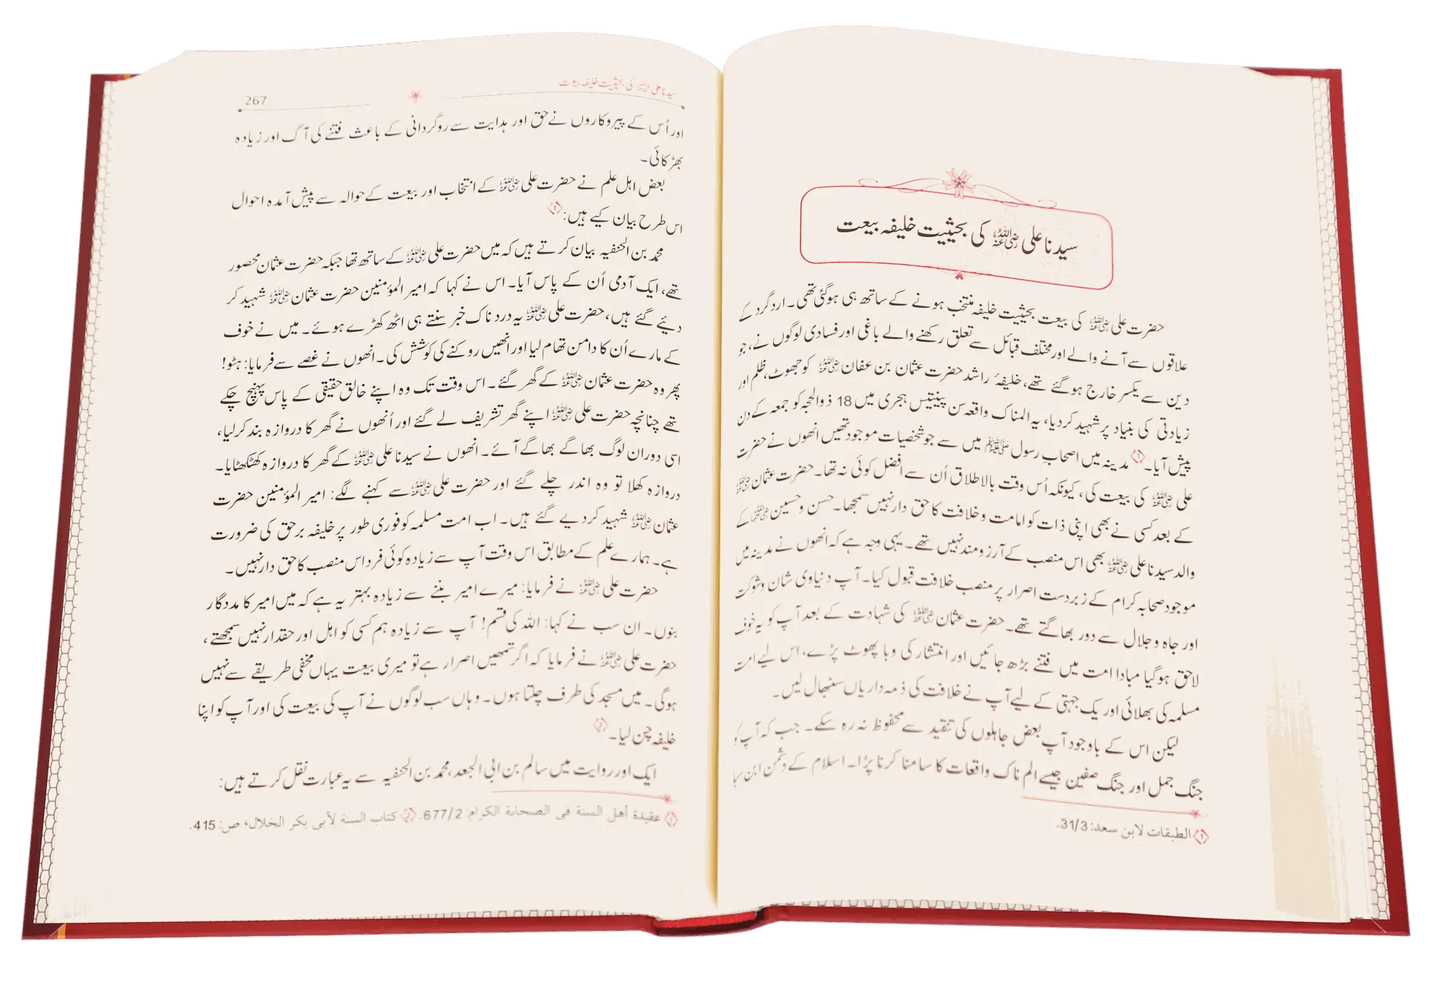 سیدنا علی رضی اللہ عنہ کی بحیثیت خلیفہ بیعت
حضرت علی رضی اللہ عنہ کی بیعت بحیثیت خلیفہ منتخب ہونے کے ساتھ ہی ہوگئی تھی۔ اردگرد کے
علاقوں سے آنے والے اور مختلف قبائل سے تعلق رکھنے والے باغی اور فسادی لوگوں نے، جو
دین سے یکسر خارج ہو گئے تھے، خلیفۂ راشد حضرت عثمان بن عفان رضی اللہ عنہ کو جھوٹ، ظلم اور
زیادتی کی بنیاد پر شہید کردیا، یہ المناک واقعہ سن پینتیس ہجری میں 18 ذوالحجہ کو جمعہ کے دن
پیش آیا۔ ① مدینہ میں اصحاب رسول ﷺ میں سے جو شخصیات موجود تھیں انھوں نے حضرت
علی رضی اللہ عنہ کی بیعت کی، کیونکہ اُس وقت بالاطلاق اُن سے افضل کوئی نہ تھا۔ حضرت عثمان رضی اللہ عنہ
کے بعد کسی نے بھی اپنی ذات کو امامت و خلافت کا حق دار نہیں سمجھا۔ حسن و حسین رضی اللہ عنہما کے
والد سیدنا علی رضی اللہ عنہ بھی اس منصب کے آرزو مند نہیں تھے۔ یہی وجہ ہے کہ انھوں نے مدینہ میں
موجود صحابہ کرام کے زبردست اصرار پر منصب خلافت قبول کیا۔ آپ دنیاوی شان و شوکت
اور جاہ و جلال سے دور بھاگتے تھے۔ حضرت عثمان رضی اللہ عنہ کی شہادت کے بعد آپ کو یہ خوف
لاحق ہوگیا مبادا امت میں فتنے بڑھ جائیں اور انتشار کی وبا پھوٹ پڑے، اس لیے امت
مسلمہ کی بھلائی اور یک جہتی کے لیے آپ نے خلافت کی ذمہ داریاں سنبھال لیں۔
لیکن اس کے باوجود آپ بعض جاہلوں کی تنقید سے محفوظ نہ رہ سکے۔ جب کہ آپ کو
جنگ جمل اور جنگ صفین جیسے الم ناک واقعات کا سامنا کرنا پڑا۔ اسلام کے دشمن ابن سبا
① الطبقات لابن سعد: 31/3.
سیدنا علی رضی اللہ عنہ کی بحیثیت خلیفہ بیعت
267
اور اُس کے پیروکاروں نے حق اور ہدایت سے روگردانی کے باعث فتنے کی آگ اور زیادہ
بھڑکائی۔
بعض اہل علم نے حضرت علی رضی اللہ عنہ کے انتخاب اور بیعت کے حوالہ سے پیش آمدہ احوال
اس طرح بیان کیے ہیں: ①
محمد بن الحنفیہ بیان کرتے ہیں کہ میں حضرت علی رضی اللہ عنہ کے ساتھ تھا جبکہ حضرت عثمان محصور
تھے، ایک آدمی اُن کے پاس آیا۔ اس نے کہا کہ امیر المؤمنین حضرت عثمان رضی اللہ عنہ شہید کر
دیئے گئے ہیں، حضرت علی رضی اللہ عنہ یہ درد ناک خبر سنتے ہی اٹھ کھڑے ہوئے۔ میں نے خوف
کے مارے اُن کا دامن تھام لیا اور انھیں روکنے کی کوشش کی۔ انھوں نے غصے سے فرمایا: ہٹو!
پھر وہ حضرت عثمان رضی اللہ عنہ کے گھر گئے۔ اس وقت تک وہ اپنے خالق حقیقی کے پاس پہنچ چکے
تھے چنانچہ حضرت علی رضی اللہ عنہ اپنے گھر تشریف لے گئے اور اُنھوں نے گھر کا دروازہ بند کرلیا،
اسی دوران لوگ بھاگے بھاگے آئے۔ انھوں نے سیدنا علی رضی اللہ عنہ کے گھر کا دروازہ کھٹکھٹایا۔
دروازہ کھلا تو وہ اندر چلے گئے اور حضرت علی رضی اللہ عنہ سے کہنے لگے: امیر المؤمنین حضرت
عثمان رضی اللہ عنہ شہید کردیے گئے ہیں۔ اب امت مسلمہ کو فوری طور پر خلیفہ برحق کی ضرورت
ہے۔ ہمارے علم کے مطابق اس وقت آپ سے زیادہ کوئی فرد اس منصب کا حق دار نہیں۔
حضرت علی رضی اللہ عنہ نے فرمایا: میرے امیر بننے سے زیادہ بہتر یہ ہے کہ میں امیر کا مددگار
بنوں۔ ان سب نے کہا: اللہ کی قسم! آپ سے زیادہ ہم کسی کو اہل اور حقدار نہیں سمجھتے،
حضرت علی رضی اللہ عنہ نے فرمایا کہ اگر تمھیں اصرار ہے تو میری بیعت یہاں مخفی طریقے سے نہیں
ہوگی۔ میں مسجد کی طرف چلتا ہوں۔ وہاں سب لوگوں نے آپ کی بیعت کی اور آپ کو اپنا
خلیفہ چن لیا۔ ②
ایک اور روایت میں سالم بن ابی الجعد، محمد بن الحنفیہ سے یہ عبارت نقل کرتے ہیں:
① عقيدة أهل السنة فى الصحابة الكرام: 677/2. ② كتاب السنة لأبى بكر الخلال، ص: 415.